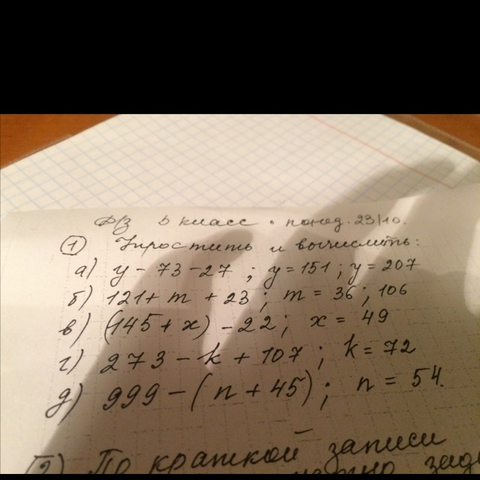 Д/З 5 класс • понед. 23/10.
① Упростить и вычислить:
а) y - 73 - 27 ; y = 151 ; y = 207
б) 121 + m + 23 ; m = 36 ; 106
в) (145 + x) - 22 ; x = 49
г) 273 - k + 107 ; k = 72
д) 999 - (n + 45) ; n = 54.
② По краткой записи